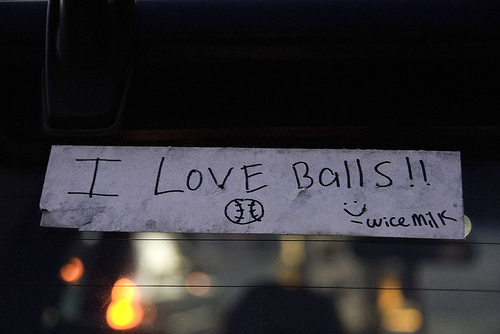 I LOVE Balls!!
-wicemilk